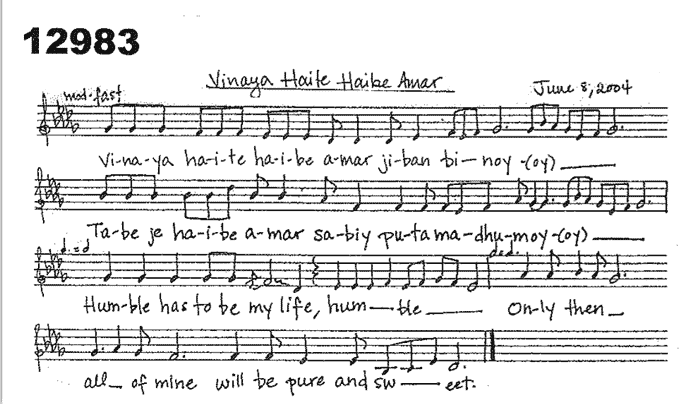 12983
Vinaya Haite Haibe Amar
June 8, 2004
mod. fast
Vi-na-ya ha-i-te ha-i-be a-mar ji-ban bi-noy-(oy)
Ta-be je ha-i-be a-mar sa-biy pu-ta ma-dhu-moy-(oy)
Hum-ble has to be my life, hum-ble On-ly then
all of mine will be pure and sw-eet.